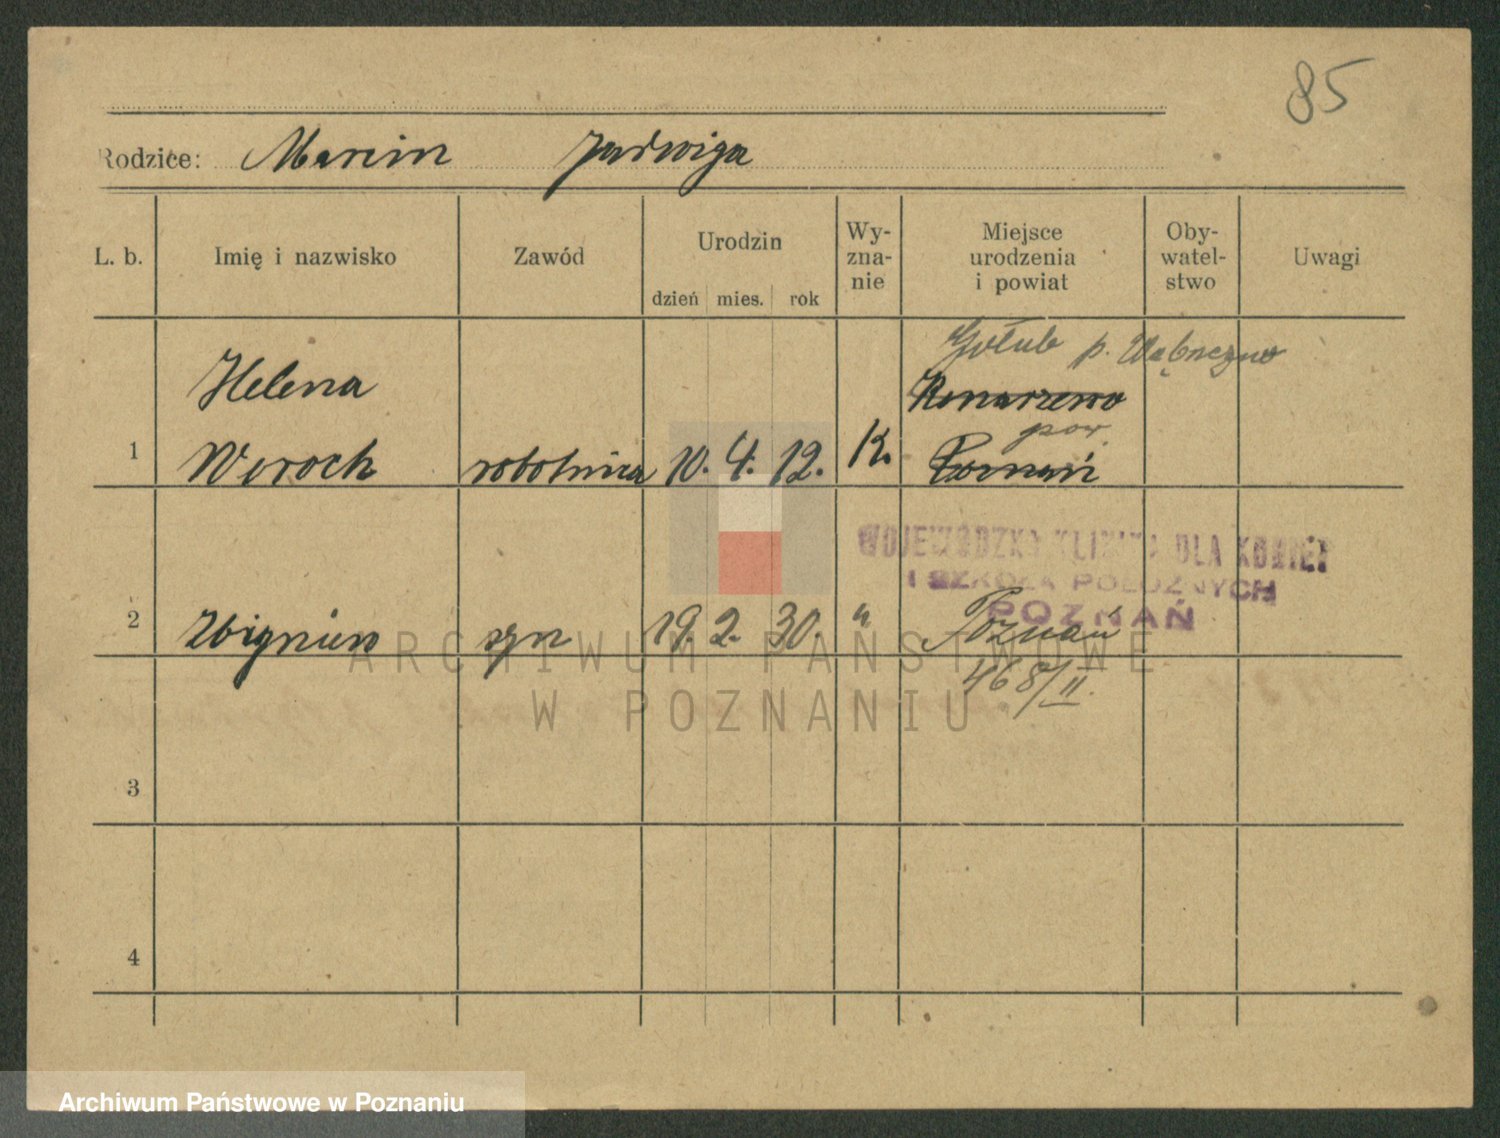 85
Rodzice: Marcin Jadwiga
L. b. Imię i nazwisko Zawód Urodzin Wy- Miejsce Oby- Uwagi
zna- urodzenia watel-
nie i powiat stwo
dzień mies. rok
Gołub p. Wąbrzeźno
Helena Konarzewo
pow.
1 Woroch robotnica 10. 4. 12. K. Poznań
WOJEWÓDZKA KLINIKA DLA KOBIET
I SZKOŁA POŁOŻNYCH
POZNAŃ
2 Zbigniew syn 19. 2. 30. " Poznań
468/II.
3
4
ARCHIWUM PAŃSTWOWE
W POZNANIU
Archiwum Państwowe w Poznaniu